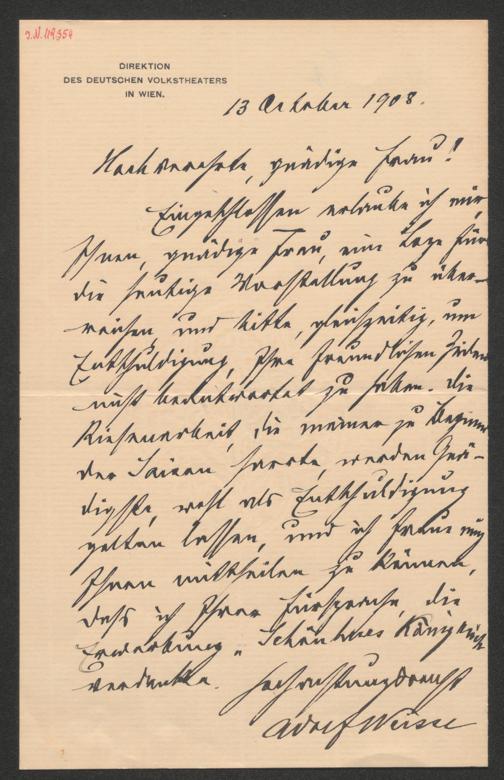 J.N. 119354
DIREKTION
DES DEUTSCHEN VOLKSTHEATERS
IN WIEN.
13 October 1908.
Hochverehrte, gnädige Frau!
Eingeschlossen erlaube ich mir,
Ihnen, gnädige Frau, eine Loge für
die heutige Vorstellung zu über-
reichen, und bitte, gleichzeitig, um
Entschuldigung, Ihre freundlichen Zeilen
nicht beantwortet zu haben. Die
Riesenarbeit, die meiner zu Beginn
der Saison harrte, werden Gnä-
digste, wohl als Entschuldigung
gelten lassen, und ich freue mich
Ihnen mittheilen zu können,
dass ich Ihrer Fürsprache, die
Erwerbung „Schönherrs Königreich
verdanke.
Hochachtungsvollst
Adolf Weisse